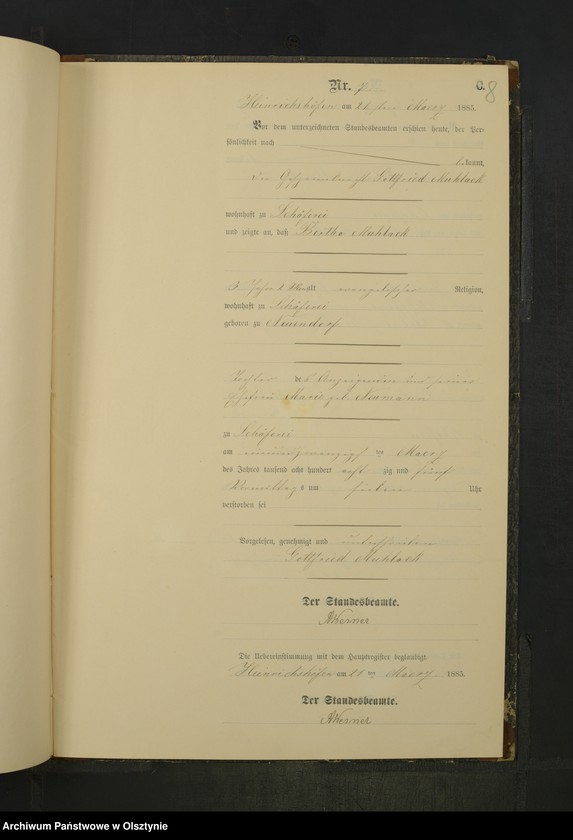 Nr. 7
C.
8
Heinrichshöfen am 21ten Maerz 1885.
Vor dem unterzeichneten Standesbeamten erschien heute, der Per-
sönlichkeit nach
kannt,
der Gottfried Muhlack
wohnhaft zu Schäferei
und zeigte an, daß Bertha Muhlack
3 Jahre alt evangelischer Religion,
wohnhaft zu Schäferei
geboren zu Neuendorf
Tochter des Anzeigenden und seiner
Ehefrau Marie geb. Neumann
zu Schäferei
am einundzwanzigsten Maerz
des Jahres tausend acht hundert acht zig und fünf
Vormittags um sieben Uhr
verstorben sei
Vorgelesen, genehmigt und unterschrieben
Gottfried Muhlack
Der Standesbeamte.
AWerner
Die Uebereinstimmung mit dem Hauptregister beglaubigt.
Heinrichshöfen am 21ten Maerz 1885.
Der Standesbeamte.
AWerner
Archiwum Państwowe w Olsztynie